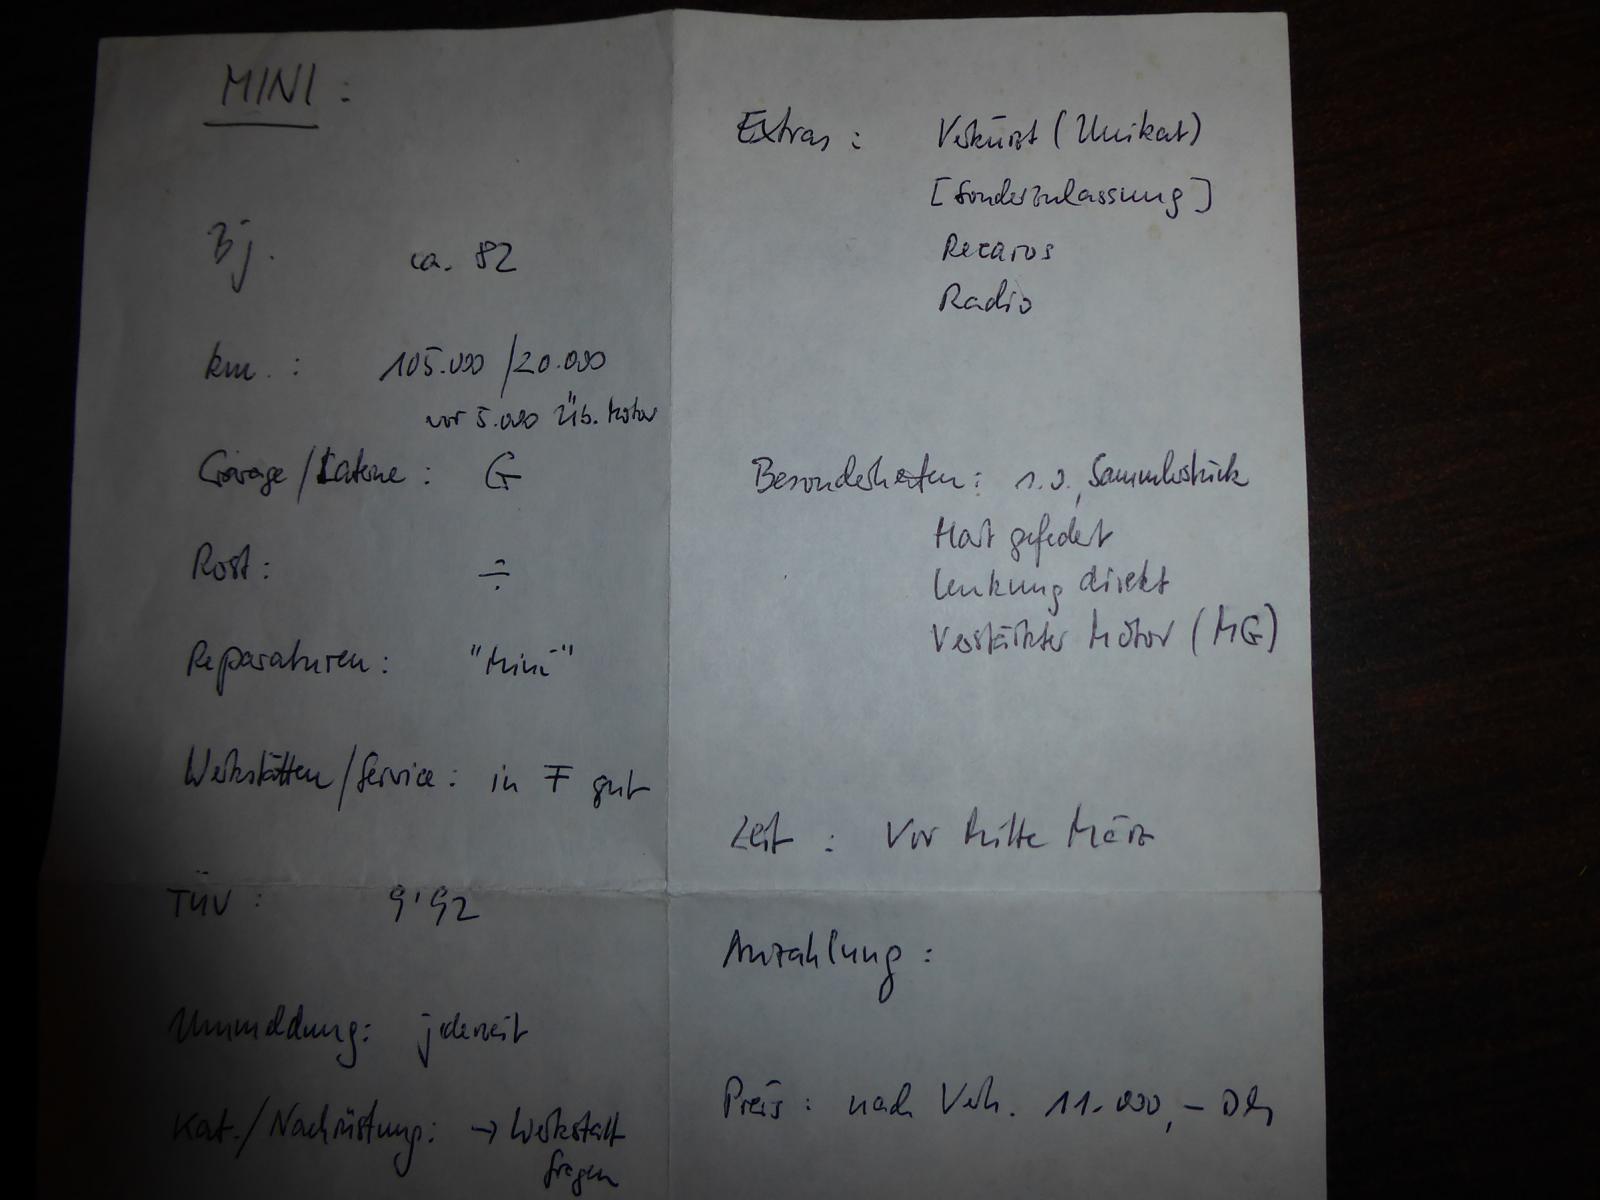 MINI :
Bj. ca. 82
km. : 105.000 / 20.000
vor 5.000 Üb. Motor
Garage / Laterne : G
Rost : ÷
Reparaturen : "Mini"
Werkstätten / Service : in F gut
TÜV : 9'92
Ummeldung : jederzeit
Kat. / Nachrüstung : → Werkstatt
fragen
Extras : Verkürzt (Unikat)
[Sonderzulassung]
Recaros
Radio
Besonderheiten : s.o., Sammlerstück
Hart gefedert
Lenkung direkt
Verstärkter Motor (MG)
Zeit : Vor Mitte März
Anzahlung :
Preis : nach Verh. 11.000,- DM